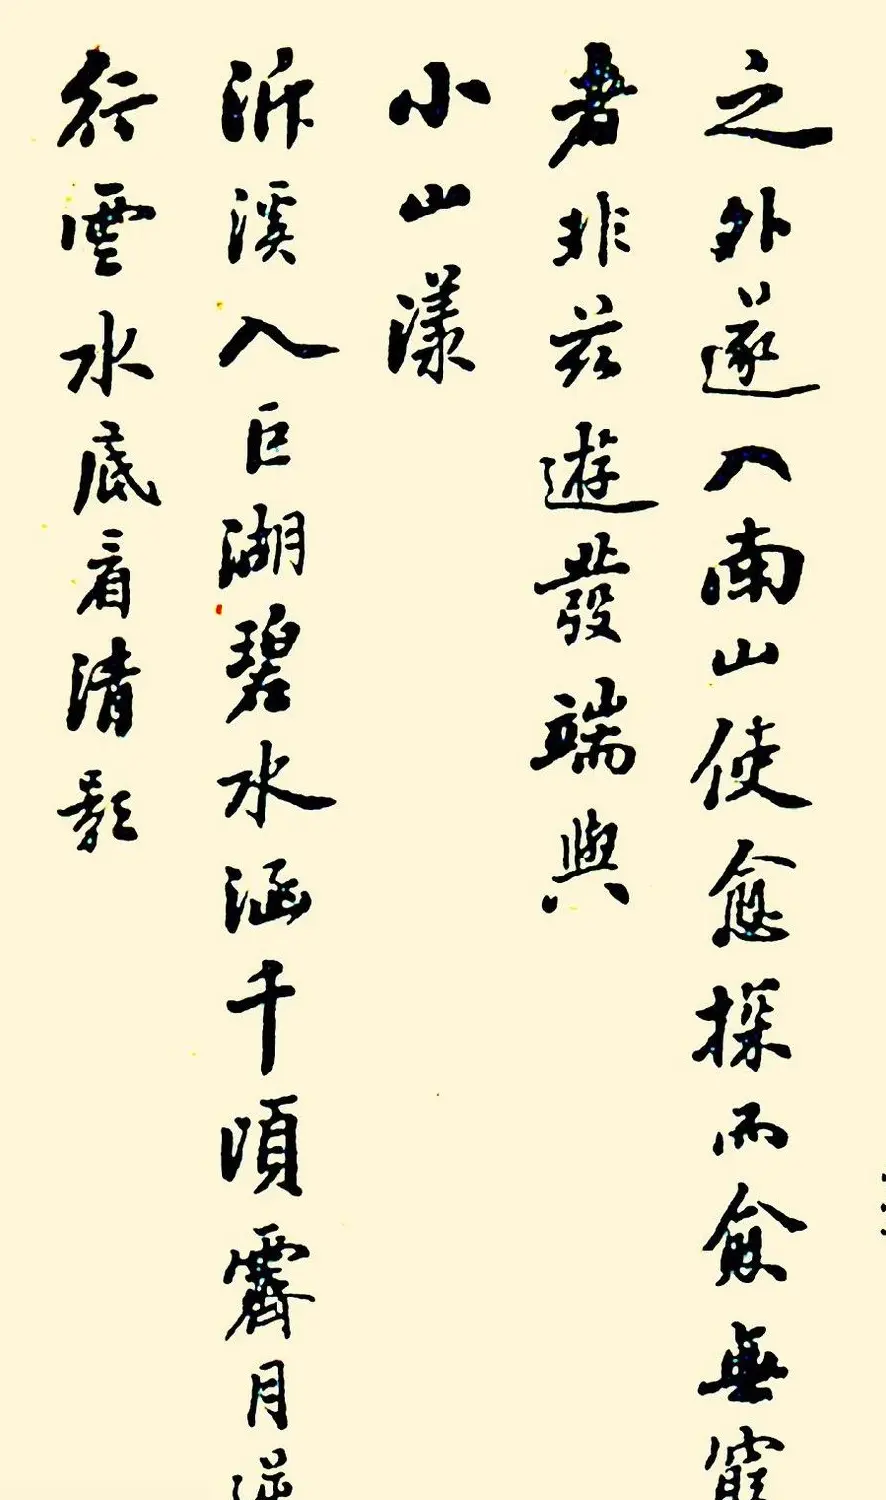 之外遂入南山使愈探而愈無窮
者非茲遊發端與
小山漾
泝溪入巨湖碧水涵千頃霽月
行雲水底看清影